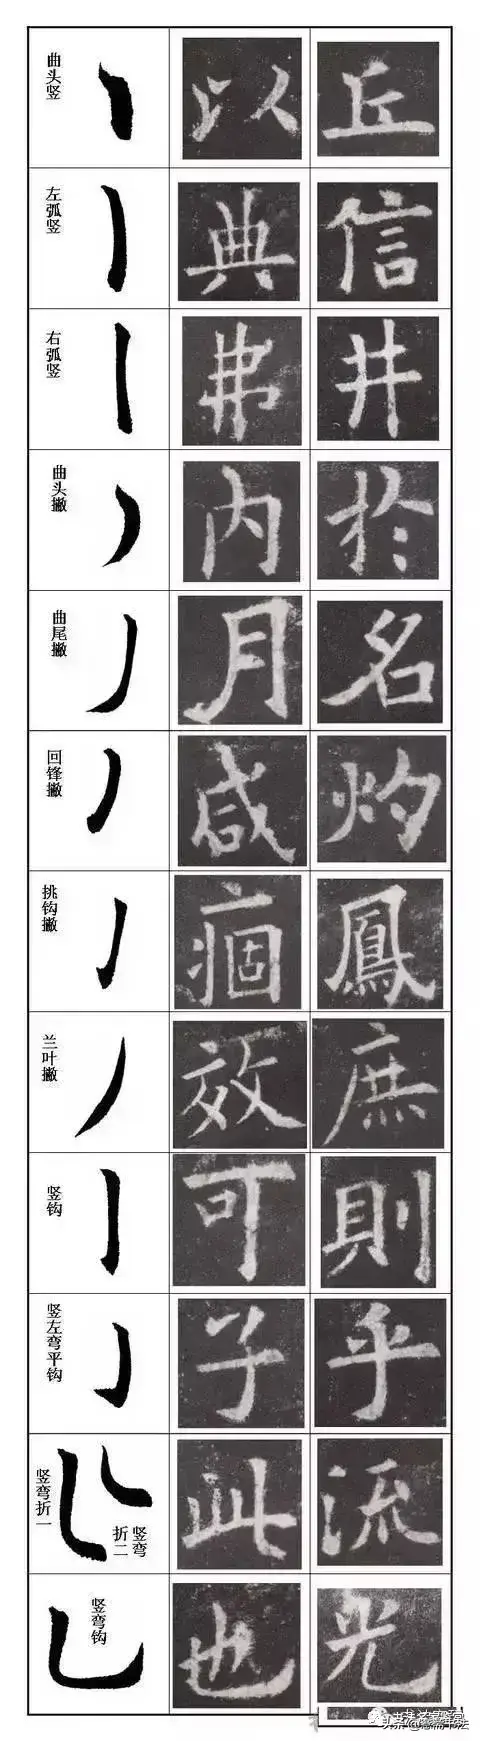 曲头竖 以 丘
左弧竖 典 信
右弧竖 弗 井
曲头撇 内 於
曲尾撇 月 名
回锋撇 咸 灼
挑钩撇 痼 鳳
兰叶撇 效 庶
竖钩 可 則
竖左弯平钩 子 乎
竖弯折一 竖弯折二 此 流
竖弯钩 也 光